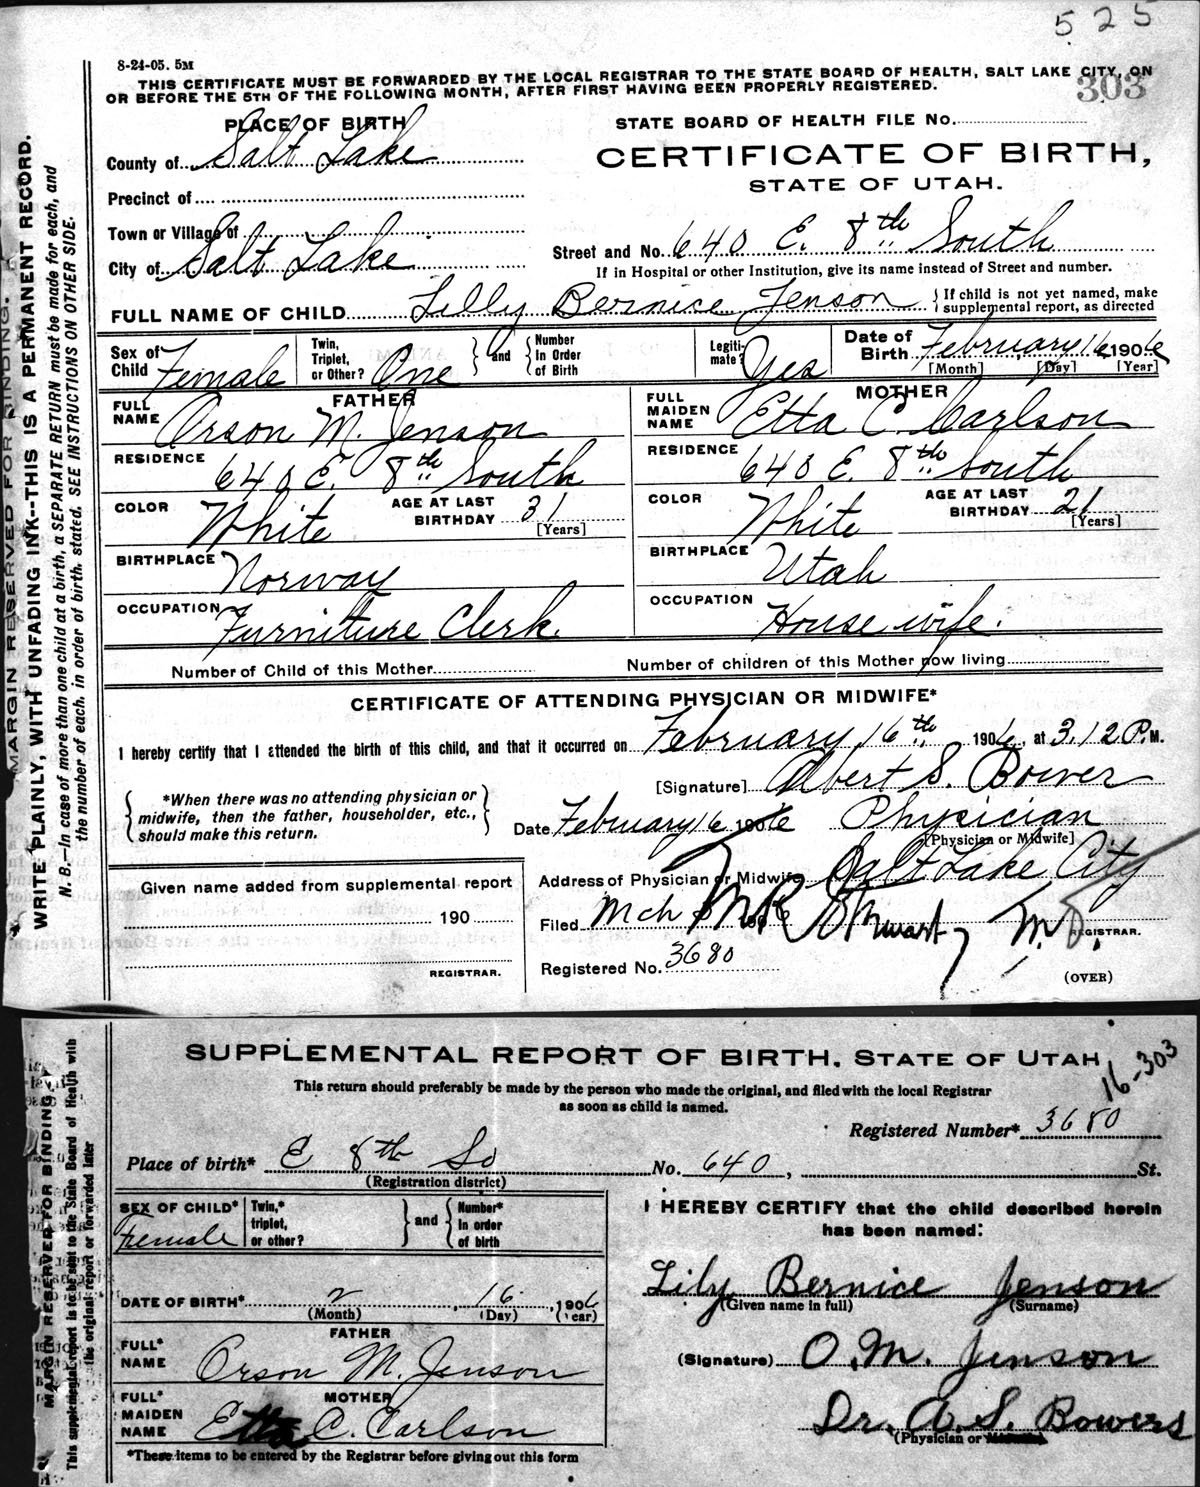 525
8-24-05. 5M
THIS CERTIFICATE MUST BE FORWARDED BY THE LOCAL REGISTRAR TO THE STATE BOARD OF HEALTH, SALT LAKE CITY, ON
OR BEFORE THE 5TH OF THE FOLLOWING MONTH, AFTER FIRST HAVING BEEN PROPERLY REGISTERED.
303
PLACE OF BIRTH
STATE BOARD OF HEALTH FILE No.
County of Salt Lake
CERTIFICATE OF BIRTH,
STATE OF UTAH.
Precinct of
Town or Village of
Street and No. 640 E. 8th South
City of Salt Lake
If in Hospital or other Institution, give its name instead of Street and number.
FULL NAME OF CHILD Lilly Bernice Jenson { If child is not yet named, make
supplemental report, as directed
Sex of Child Female
Twin, Triplet, or Other? One } and { Number In Order of Birth
Legiti-mate? Yes
Date of Birth February 16 1906
[Month] [Day] [Year]
FATHER
FULL NAME Orson M. Jenson
RESIDENCE 640 E. 8th South
COLOR White AGE AT LAST BIRTHDAY 31 [Years]
BIRTHPLACE Norway
OCCUPATION Furniture Clerk.
MOTHER
FULL MAIDEN NAME Etta C. Carlson
RESIDENCE 640 E. 8th South
COLOR White AGE AT LAST BIRTHDAY 21 [Years]
BIRTHPLACE Utah
OCCUPATION House wife.
Number of Child of this Mother
Number of children of this Mother now living
CERTIFICATE OF ATTENDING PHYSICIAN OR MIDWIFE*
I hereby certify that I attended the birth of this child, and that it occurred on February 16th 1906, at 3.12 P.M.
[Signature] Albert S. Bower
{ *When there was no attending physician or
midwife, then the father, householder, etc.,
should make this return. }
Date February 16 1906 Physician
[Physician or Midwife]
Address of Physician or Midwife Salt Lake City
Given name added from supplemental report
190
REGISTRAR.
Filed Mch 190 M R Stewart, M.D.
REGISTRAR.
Registered No. 3680
(OVER)
MARGIN RESERVED FOR BINDING.
WRITE PLAINLY, WITH UNFADING INK--THIS IS A PERMANENT RECORD.
N. B.—In case of more than one child at a birth, a SEPARATE RETURN must be made for each, and
the number of each, in order of birth, stated. SEE INSTRUCTIONS ON OTHER SIDE.
SUPPLEMENTAL REPORT OF BIRTH, STATE OF UTAH
16-303
This return should preferably be made by the person who made the original, and filed with the local Registrar
as soon as child is named.
Registered Number* 3680
Place of birth* E 8th So No. 640, St.
(Registration district)
SEX OF CHILD* Female
Twin,* triplet, or other? } and { Number* In order of birth
DATE OF BIRTH* 2 16 1906
(Month) (Day) (Year)
FATHER
FULL* NAME Orson M. Jenson
MOTHER
FULL* MAIDEN NAME Etta C. Carlson
*These items to be entered by the Registrar before giving out this form
I HEREBY CERTIFY that the child described herein
has been named:
Lily Bernice Jenson
(Given name in full) (Surname)
(Signature) O. M. Jenson
Dr. A. S. Bowers
(Physician or Midwife)
MARGIN RESERVED FOR BINDING
This supplemental report is to be sent to the State Board of Health with
the original report or forwarded later